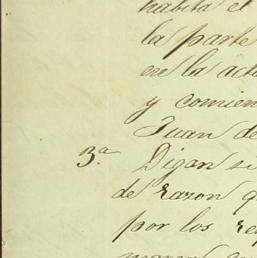 habita el
la parte
en la actu
y comien
Juan de
3.ª Digan si
de razon q
por los re